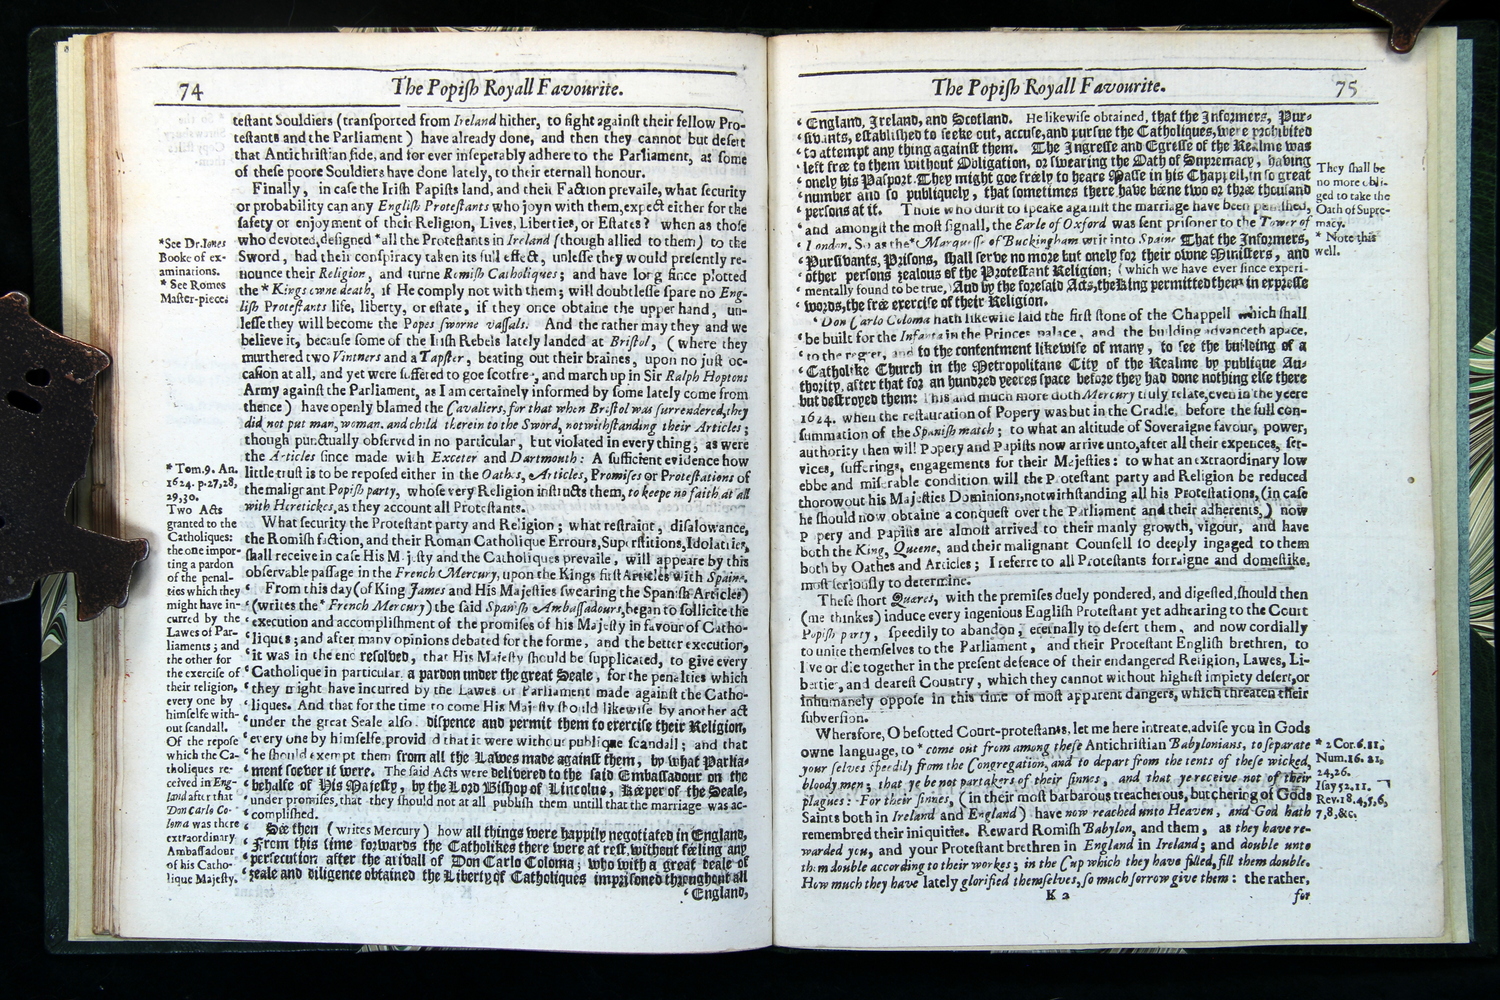 74
The Popish Royall Favourite.
testant Souldiers (transported from Ireland hither, to fight against their fellow Pro-
testants and the Parliament) have already done, and then they cannot but desert
that Antichristian side, and for ever inseperably adhere to the Parliament, as some
of these poore Souldiers have done lately, to their eternall honour.
Finally, in case the Irish Papists land, and their Faction prevaile, what security
or probability can any English Protestants who joyn with them, expect either for the
safety or enjoyment of their Religion, Lives, Liberties, or Estates? when as those
who devoted, designed *all the Protestants in Ireland (though allied to them) to the
Sword, had their conspiracy taken its full effect, unlesse they would presently re-
nounce their Religion, and turne Romish Catholiques; and have long since plotted
the * Kings owne death, if He comply not with them; will doubtlesse spare no Eng-
lish Protestants life, liberty, or estate, if they once obtaine the upper hand, un-
lesse they will become the Popes sworne vassals. And the rather may they and we
believe it, because some of the Irish Rebels lately landed at Bristol, (where they
murthered two Vintners and a Tapster, beating out their braines, upon no just oc-
casion at all, and yet were suffered to goe scotfre, and march up in Sir Ralph Hoptons
Army against the Parliament, as I am certainely informed by some lately come from
thence) have openly blamed the Cavaliers, for that when Bristol was surrendered, they
did not put man, woman. and child therein to the Sword, notwithstanding their Articles;
though punctually observed in no particular, but violated in every thing; as were
the Articles since made with Exceter and Dartmouth: A sufficient evidence how
little trust is to be reposed either in the Oathes, Articles, Promises or Protestations of
the malignant Popish party, whose very Religion instructs them, to keepe no faith at all
with Heretickes, as they account all Protestants.
What security the Protestant party and Religion; what restraint, disalowance,
the Romish faction, and their Roman Catholique Errours, Superstitions, Idolatries,
shall receive in case His Majesty and the Catholiques prevaile, will appeare by this
observable passage in the French Mercury, upon the Kings first Articles with Spaine.
‘ From this day (of King James and His Majesties swearing the Spanish Articles)
‘ (writes the * French Mercury) the said Spanish Ambassadours, began to sollicite the
‘ execution and accomplishment of the promises of his Majesty in favour of Catho-
‘ liques; and after many opinions debated for the forme, and the better execution,
‘ it was in the end resolved, that His Majesty should be supplicated, to give every
‘ Catholique in particular a pardon under the great Seale, for the penalties which
‘ they might have incurred by the Lawes of Parliament made against the Catho-
‘ liques. And that for the time to come His Majesty should likewise by another act
‘ under the great Seale also, dispence and permit them to exercise their Religion,
‘ every one by himselfe, provided that it were without publique scandall; and that
‘ he should exempt them from all the Lawes made against them, by what Parlia-
‘ ment soever it were. The said Acts were delivered to the said Embassadour on the
‘ behalfe of His Majesty, by the Lord Bishop of Lincolus, Keeper of the Seale,
‘ under promises, that they should not at all publish them untill that the marriage was ac-
‘ complished.
‘ See then (writes Mercury) how all things were happily negotiated in England,
‘ From this time forwards the Catholikes there were at rest, without feeling any
‘ persecution after the arivall of Don Carlo Coloma; who with a great deale of
‘ zeale and diligence obtained the Liberty of Catholiques imprisoned throughout all
‘ England,
*See Dr. Iones
Booke of ex-
aminations.
* See Romes
Master-piece.
* Tom. 9. An.
1624. p. 27, 28,
29, 30.
Two Acts
granted to the
Catholiques:
the one impor-
ting a pardon
of the penal-
ties which they
might have in-
curred by the
Lawes of Par-
liaments; and
the other for
the exercise of
their religion,
every one by
himselfe with-
out scandall.
Of the repose
which the Ca-
tholiques re-
ceived in Eng-
land after that
Don Carlo Co-
loma was there
extraordinary
Ambassadour
of his Catho-
lique Majesty.
The Popish Royall Favourite.
75
‘ England, Ireland, and Scotland. He likewise obtained, that the Informers, Pur-
‘ sivants, established to seeke out, accuse, and pursue the Catholiques, were prohibited
‘ to attempt any thing against them. The Ingresse and Egresse of the Realme was
‘ left free to them without Obligation, or swearing the Oath of Supremacy, having
‘ onely his Pasport. They might goe freely to heare Masse in his Chappell, in so great
‘ number and so publiquely, that sometimes there have beene two or three thousand
‘ persons at it. Those who durst to speake against the marriage have been punished,
‘ and amongst the most signall, the Earle of Oxford was sent prisoner to the Tower of
‘ London. So as the * Marquesse of Buckingham writ into Spaine That the Informers,
‘ Pursivants, Prisons, shall serve no more but onely for their owne Ministers, and
‘ other persons zealous of the Protestant Religion; (which we have ever since experi-
‘ mentally found to be true,) And by the foresaid Acts, the King permitted them in expresse
‘ words, the free exercise of their Religion.
‘ Don Carlo Coloma hath likewise laid the first stone of the Chappell which shall
‘ be built for the Infanta in the Princes palace, and the building advanceth apace,
‘ to the regret, and to the contentment likewise of many, to see the building of a
‘ Catholike Church in the Metropolitane City of the Realme by publique Au-
thority, after that for an hundred yeeres space before they had done nothing else there
but destroyed them: This and much more doth Mercury truly relate, even in the yeere
1624. when the restauration of Popery was but in the Cradle, before the full con-
summation of the Spanish match; to what an altitude of Soveraigne favour, power,
authority then will Popery and Papists now arrive unto, after all their expences, ser-
vices, sufferings, engagements for their Majesties: to what an extraordinary low
ebbe and miserable condition will the Protestant party and Religion be reduced
thorowout his Majesties Dominions, notwithstanding all his Protestations, (in case
he should now obtaine a conquest over the Parliament and their adherents,) now
Popery and Papists are almost arrived to their manly growth, vigour, and have
both the King, Queene, and their malignant Counsell so deeply ingaged to them
both by Oathes and Articles; I referre to all Protestants forraigne and domestike,
most seriously to determine.
These short Quæres, with the premises duely pondered, and digested, should then
(me thinkes) induce every ingenious English Protestant yet adhearing to the Court
Popish party, speedily to abandon, eternally to desert them, and now cordially
to unite themselves to the Parliament, and their Protestant English brethren, to
live or die together in the present defence of their endangered Religion, Lawes, Li-
bertie, and dearest Country, which they cannot without highest impiety desert, or
inhumanely oppose in this time of most apparent dangers, which threaten their
subversion.
Wherefore, O besotted Court-protestants, let me here intreate, advise you in Gods
owne language, to * come out from among these Antichristian Babylonians, to separate
your selves speedily from the Congregation, and to depart from the tents of these wicked,
bloody men; that ye be not partakers of their sinnes, and that ye receive not of their
plagues: For their sinnes, (in their most barbarous treacherous, butchering of Gods
Saints both in Ireland and England) have now reached unto Heaven, and God hath
remembred their iniquities. Reward Romish Babylon, and them, as they have re-
warded you, and your Protestant brethren in England in Ireland; and double unto
them double according to their workes; in the Cup which they have filled, fill them double.
How much they have lately glorified themselves, so much sorrow give them: the rather,
K 2
for
They shall be
no more obli-
ged to take the
Oath of Supre-
macy.
* Note this
well.
* 2 Cor. 6. 11.
Num. 16. 21,
24, 26.
Isay 52. 11.
Rev. 18. 4, 5, 6,
7, 8, &c.